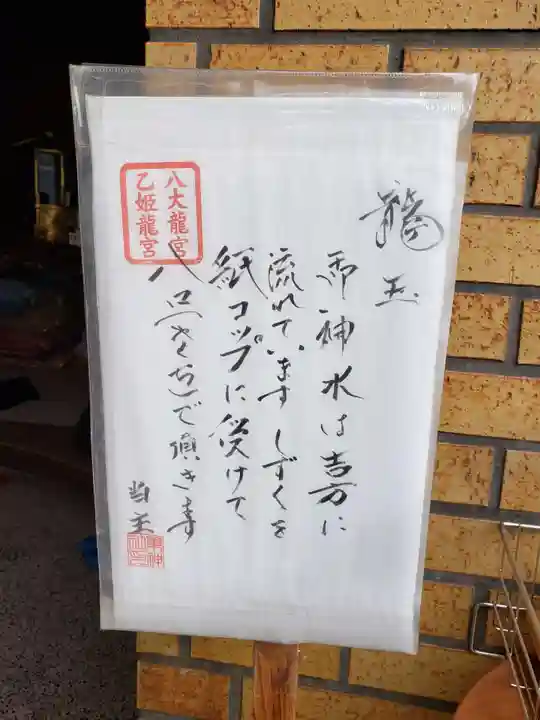 龍玉
御神水は吉方に
流れています しずくを
紙コップに受けて
八口(やくち)で頂き𛀁す
当主
八大龍宮
乙姫龍宮